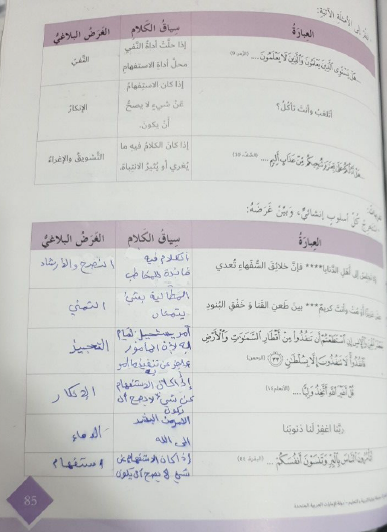 الأمثلة الآتية:
العبارة سياق الكلام الغرض البلاغي
هل يستوي الذين يعلمون والذين لا يعلمون .... (الزمر: 9)
إذا حلت أداة النفي
محل أداة الاستفهام
النفي
أتلعب وأنت تأكل؟
إذا كان الاستفهام
عن شيء لا يصح
أن يكون.
الإنكار
إذا كان الكلام فيه ما
يغري أو يثير الانتباه.
التشويق والإغراء
أسلوب إنشائي، وبين غرضه:
العبارة سياق الكلام الغرض البلاغي
إلى أهل الدنايا**** فإن خلائق السفهاء تعدي
الكلام فيه
فائدة للمخاطب
النصح والإرشاد
وأنت كريم**** بين طعن القنا و خفق البنود
التمني
إن استطعتم أن تنفذوا من أقطار السموات والأرض
فانفذوا لا تنفذون إلا بسلطان (الرحمن)
التعجيز
قل أغير الله أتخذ وليا .... (الأنعام:
إذا كان الاستفهام
عن شيء لا يصح أن
يكون
الإنكار
ربنا اغفر لنا ذنوبنا
إلى الله
الدعاء
الناس بالبر وتنسون أنفسكم ...
إذا كان الاستفهام عن
شيء لا يصح أن يكون
استفهام
85